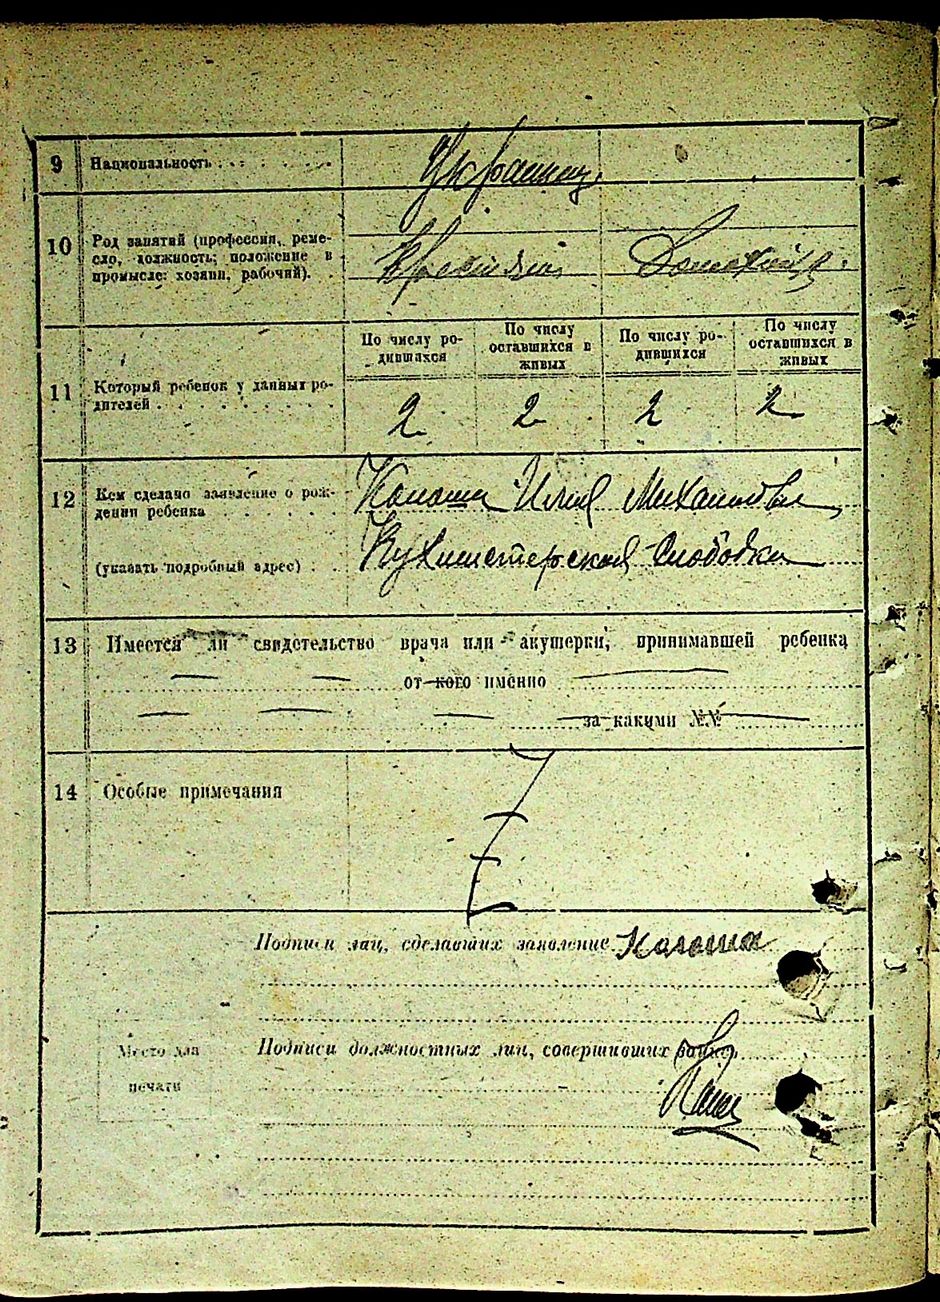 9 Национальность
Украинец
10 Род занятий (профессия, реме-
сло, должность; положение в
промысле: хозяин, рабочий).
11 Который ребенок у данных ро-
дителей
По числу ро-
дившихся
По числу
оставшихся в
живых
По числу ро-
дившихся
По числу
оставшихся в
живых
2 2 2 2
12 Кем сделано заявление о рож-
дении ребенка
Илья Михайлович
(указать подробный адрес)
Кухмистерская Слободка
13 Имеется ли свидетельство врача или акушерки, принимавшей ребенка
от кого именно
за какими №№
14 Особые примечания
Подписи лиц, сделавших заявление
Место для
печати
Подписи должностных лиц, совершивших запись